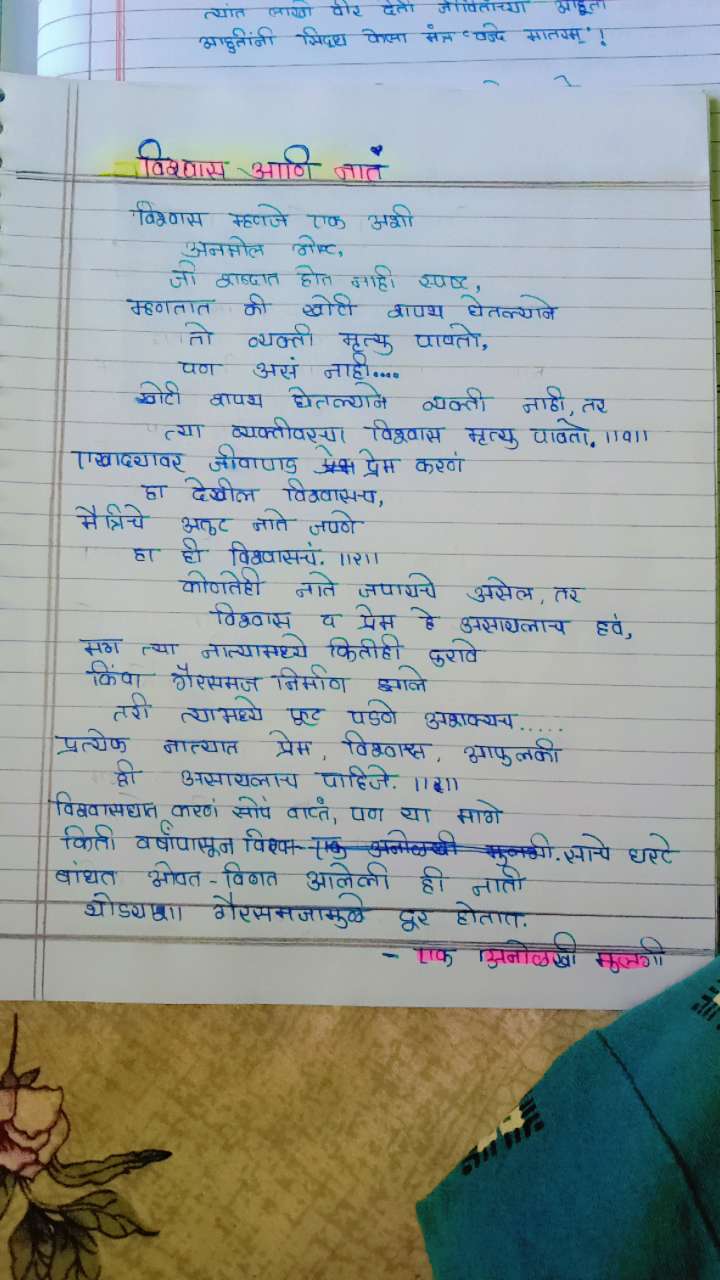 त्यांत लाखो वीर देती जीविताच्या आहुती
आहुतींनी सिद्ध केला मंत्र 'वन्दे मातरम्' !
विश्वास आणि नातं
विश्वास म्हणजे एक अशी
अनमोल गोष्ट,
जी शब्दात होत नाही स्पष्ट,
म्हणतात की खोटी शपथ घेतल्याने
तो व्यक्ती मृत्यु पावतो,
पण असं नाही....
खोटी शपथ घेतल्याने व्यक्ती नाही, तर
त्या व्यक्तीवरचा विश्वास मृत्यु पावतो. ||१||
एखाद्यावर जीवापाड प्रेम करणं
हा देखील विश्वासच,
मैत्रिचे अतुट नाते जपणे
हा ही विश्वासचं. ||२||
कोणतेही नाते जपायचे असेल, तर
विश्वास व प्रेम हे असायलाच हवं,
मग त्या नात्यामध्ये कितीही दुरावे
किंवा गैरसमज निर्माण झाले
तरी त्यामध्ये फूट पडणे अशक्यच.....
प्रत्येक नात्यात प्रेम, विश्वास, आपुलकी
ही असायलाच पाहिजे. ||३||
विश्वासघात करणं सोपं वाटतं, पण या मागे
किती वर्षांपासून विश्वा- एक अनोळखी मुलगी. साचे धागे
बांधत ओवत-विणत आलेली ही नाती
थोड्याशा गैरसमजामुळे दूर होतात.
- एक अनोळखी मुलगी